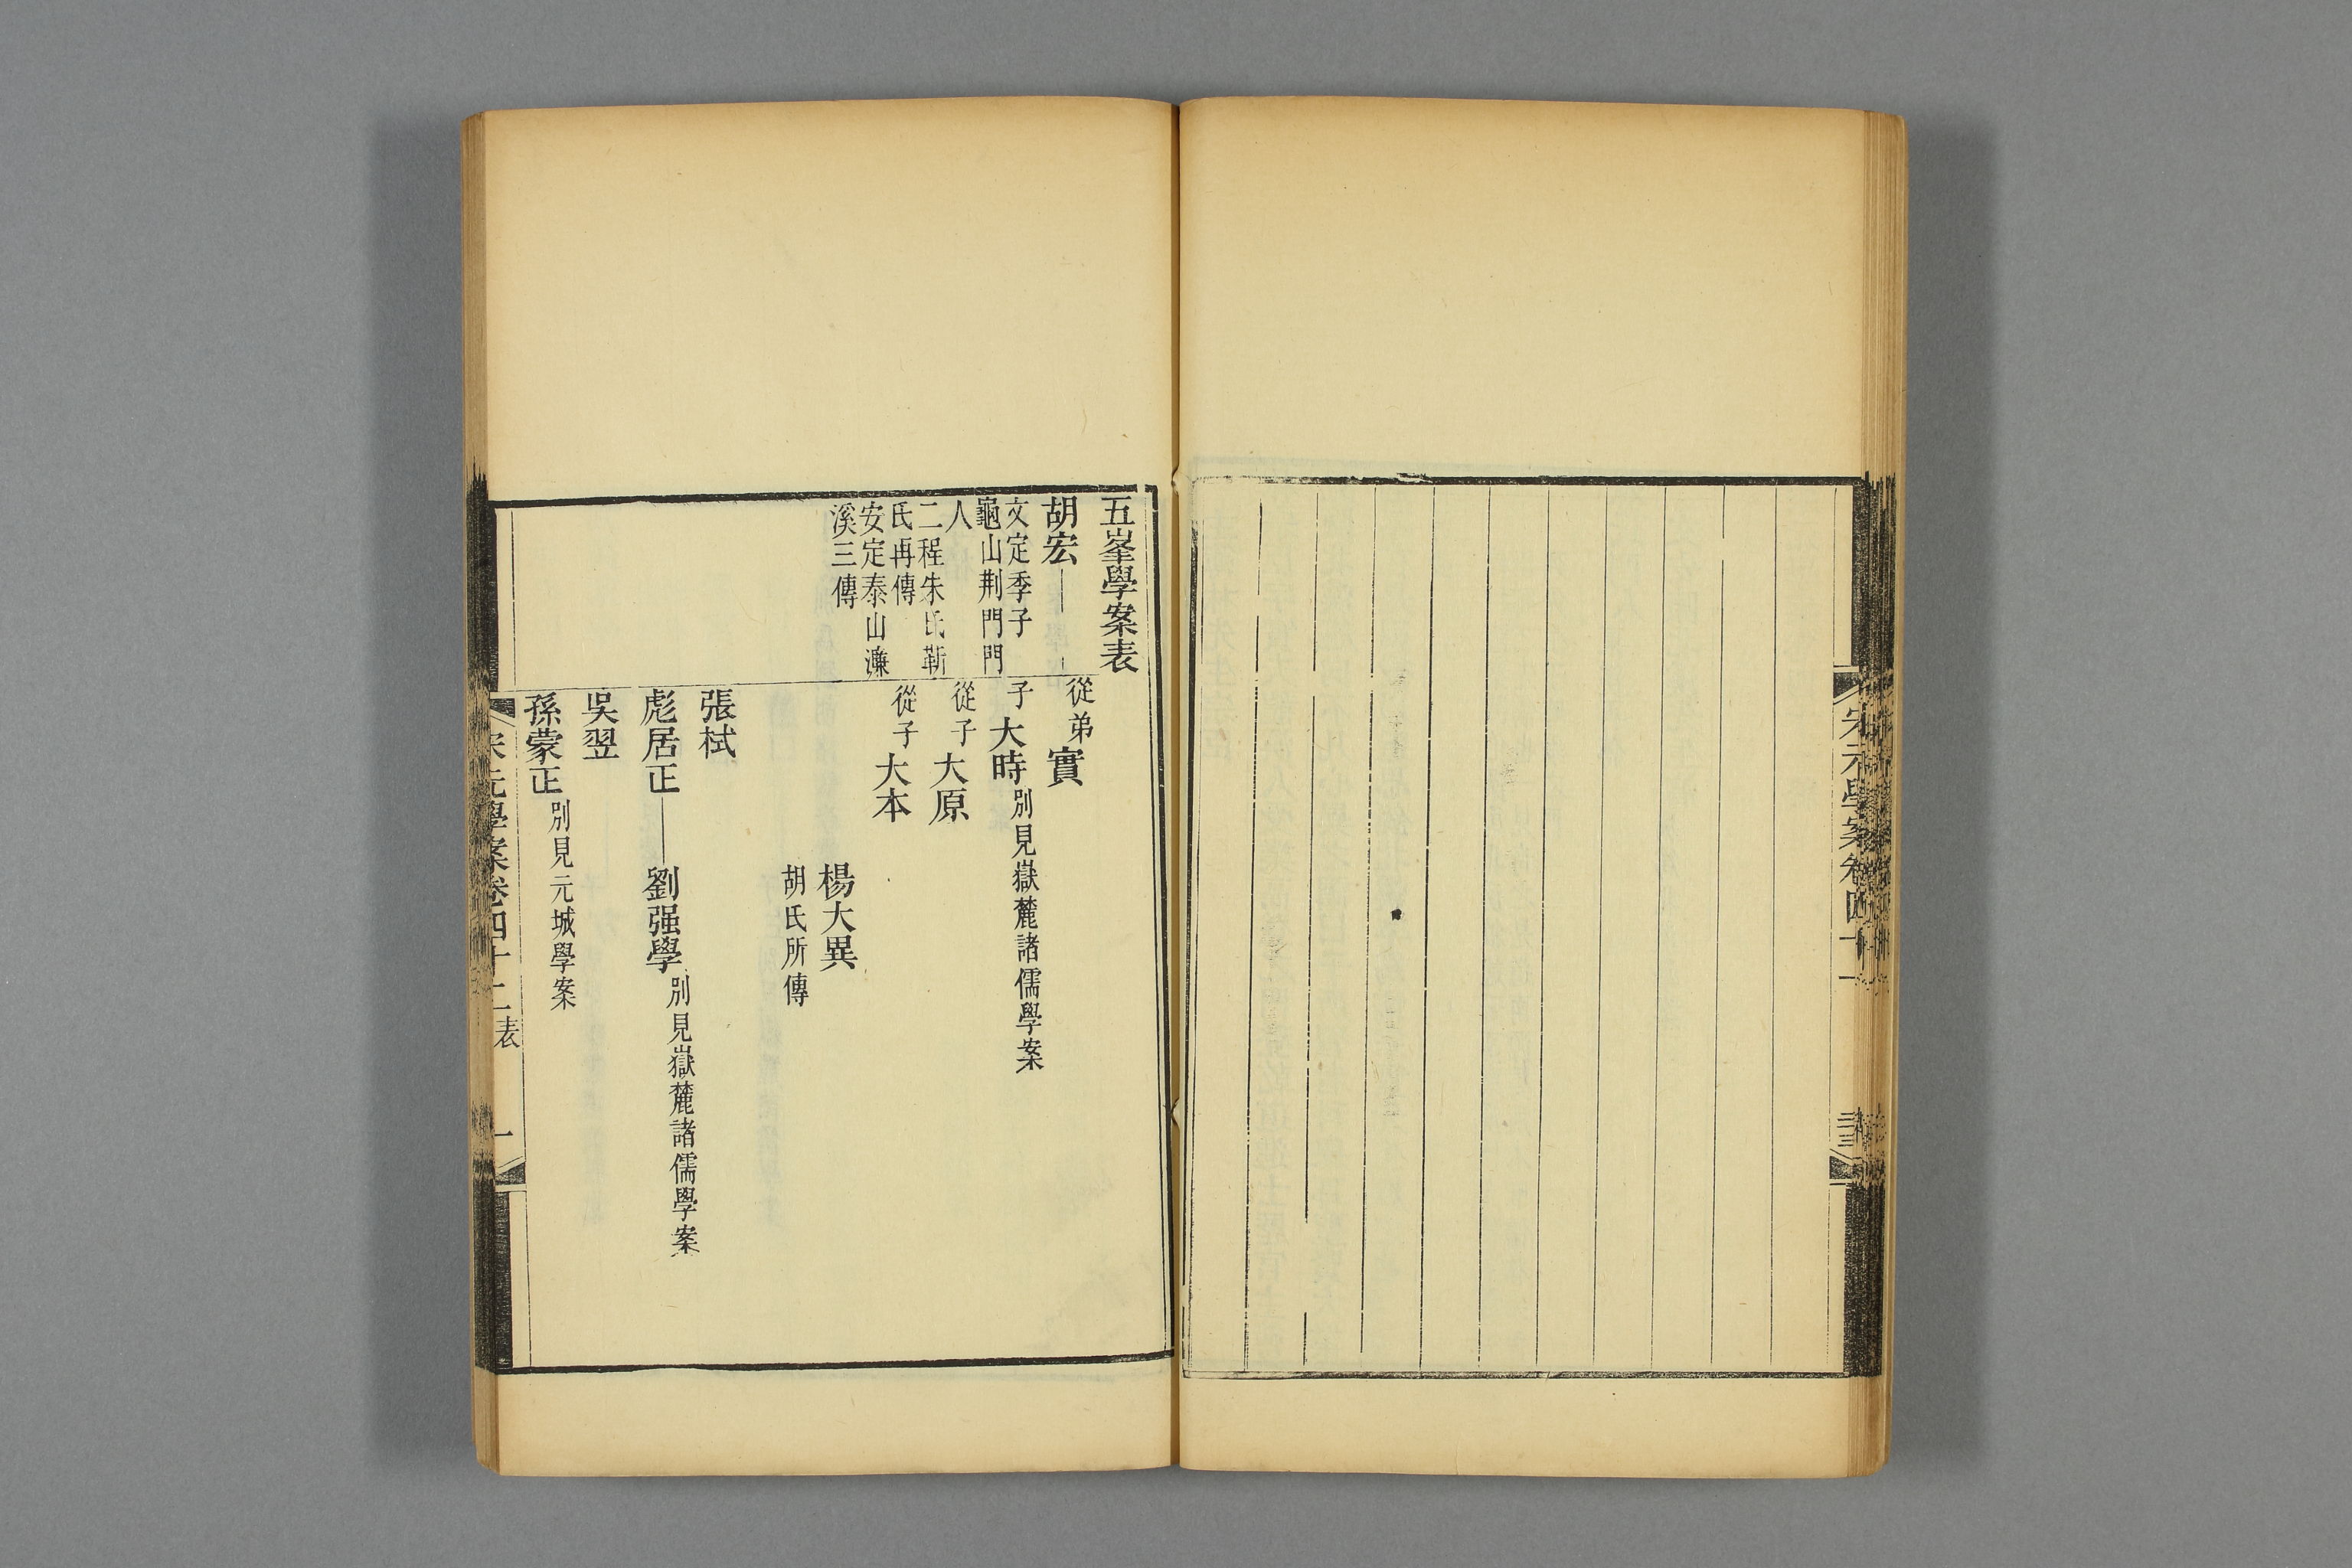 宋元學案卷四十一
五峯學案表
胡宏
文定季子
龜山荆門門
人
二程朱氏靳
氏再傳
安定泰山濂
溪三傳
從弟實
子大時別見嶽麓諸儒學案
從子大原
從子大本
楊大異
胡氏所傳
張栻
彪居正
劉强學別見嶽麓諸儒學案
吳翌
孫蒙正別見元城學案
宋元學案卷四十二表
一